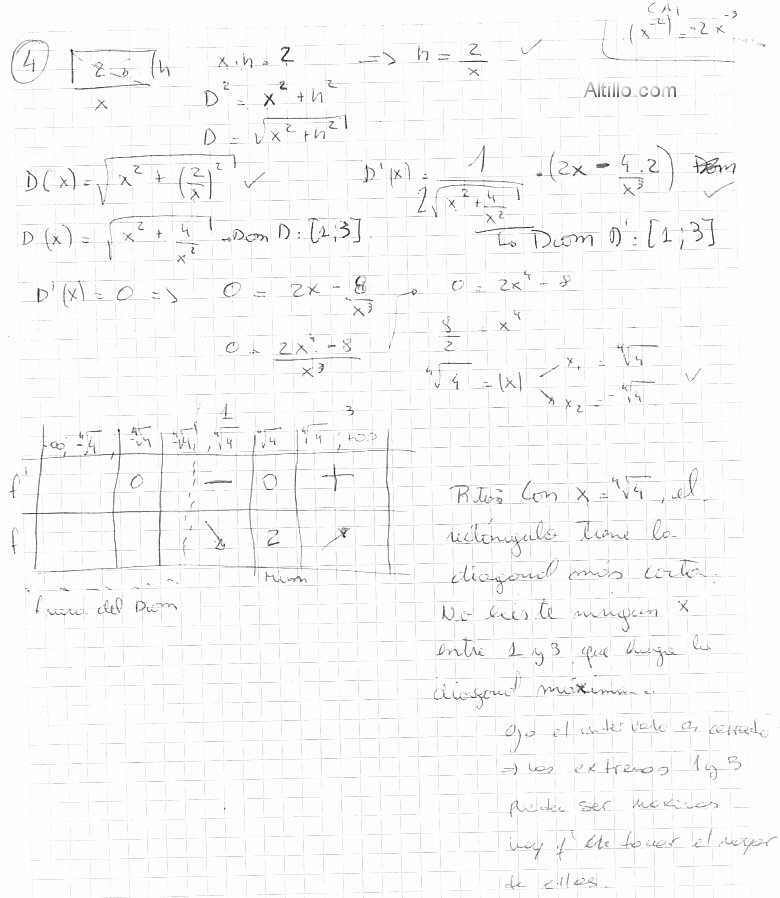 (x⁻²)' = -2x⁻³
Altillo.com
④ h x·h = 2 ⟹ h = 2/x ✓
x D² = x² + h²
D = √(x² + h²)
D(x) = √(x² + (2/x)²) ✓ D'(x) = 1/(2√(x² + 4/x²)) · (2x - 4·2/x³) ✓
D(x) = √(x² + 4/x²) Dom D: [1;3] ↳ Dom D': [1;3]
D'(x) = 0 ⟹ 0 = 2x - 8/x³ → 0 = 2x⁴ - 8
0 = (2x⁴ - 8)/x³ 8/2 = x⁴
⁴√4 = |x| x₁ = ⁴√4 ✓
x₂ = -⁴√4
1 3
-∞, -⁴√4 | -⁴√4 | -⁴√4, ⁴√4 | ⁴√4 | ⁴√4, +∞
f' 0 - 0 +
f ↘ 2 ↗
Fuera del Dom
Rta: Con x = ⁴√4, el
rectángulo tiene la
diagonal más corta.
No existe ningun x
entre 1 y 3 que haga la
diagonal máxima.
Ojo el intervalo es cerrado
⟹ los extremos 1 y 3
pueden ser maximos
hay q' tomar el mayor
de ellos.